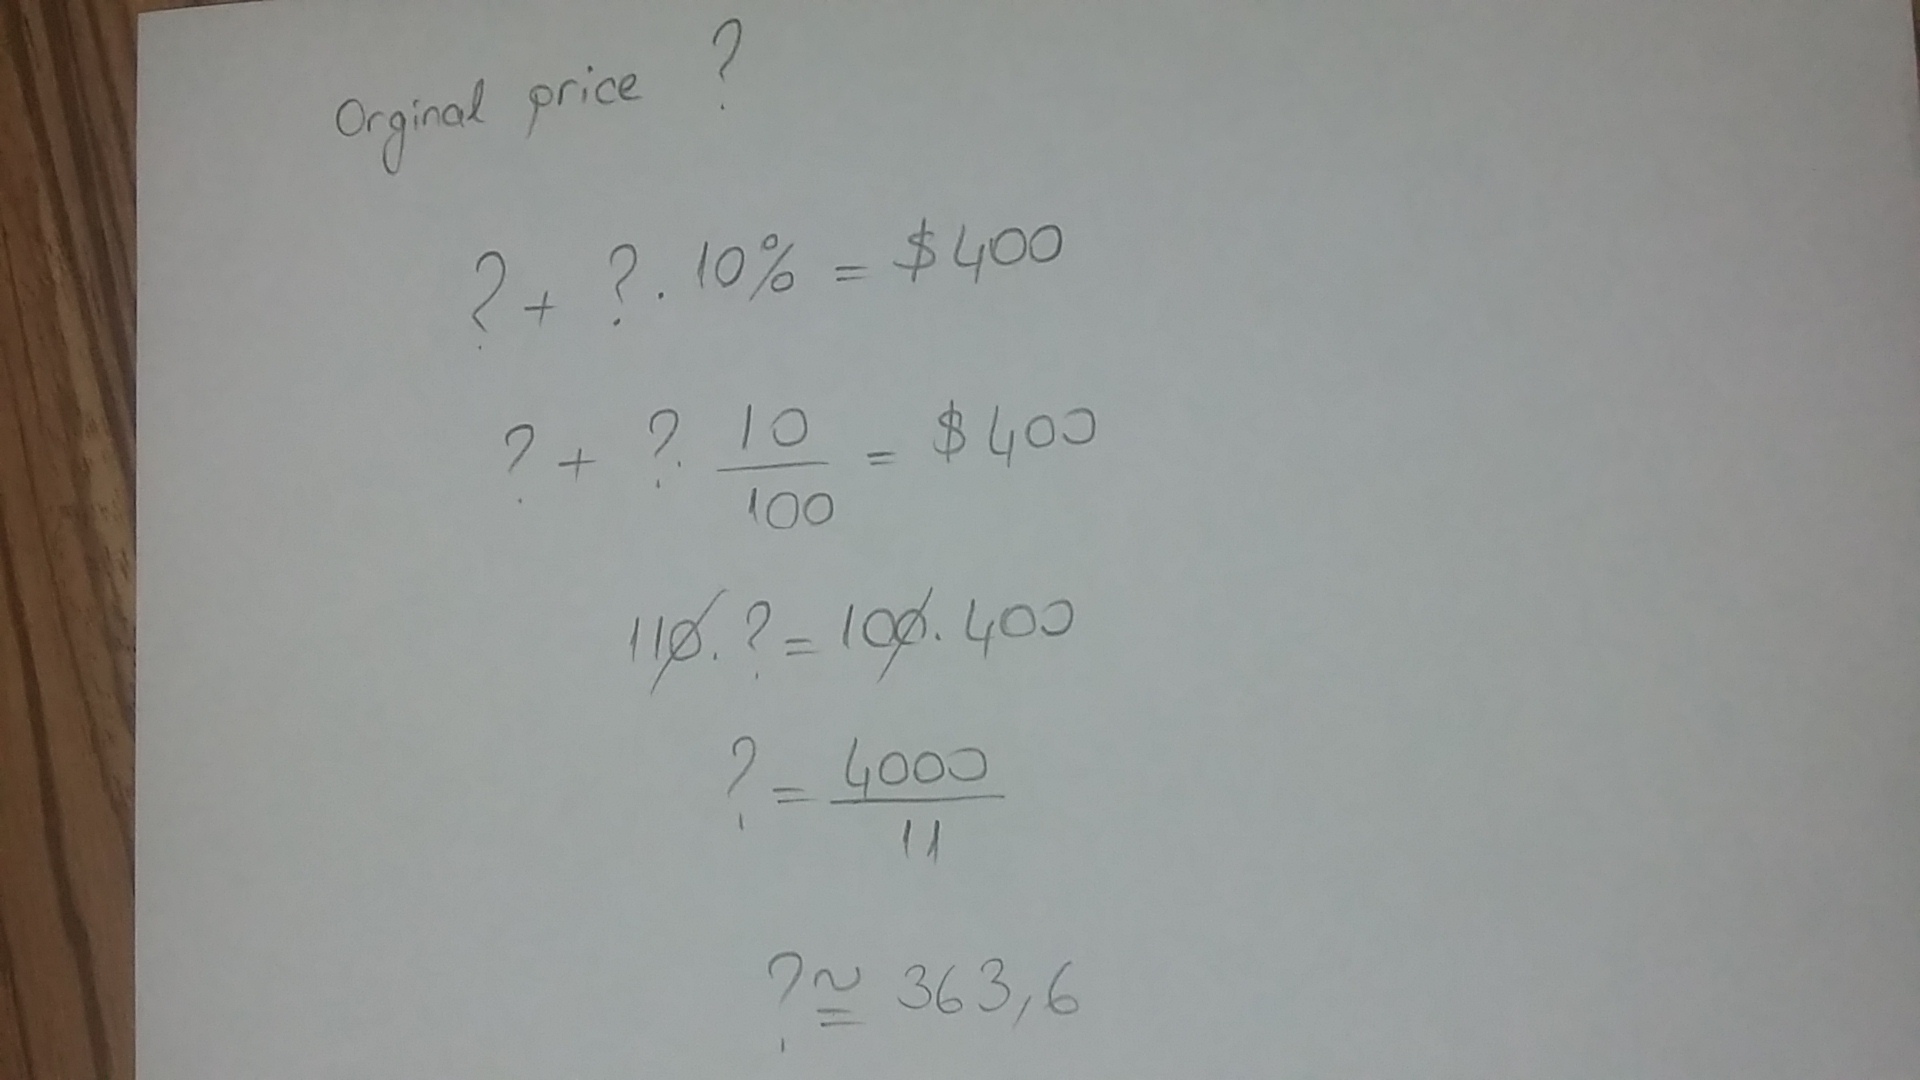 Orginal price ?
? + ? . 10% = $400
? + ? . 10/100 = $400
110 . ? = 100 . 400
? = 4000/11
? ≅ 363,6